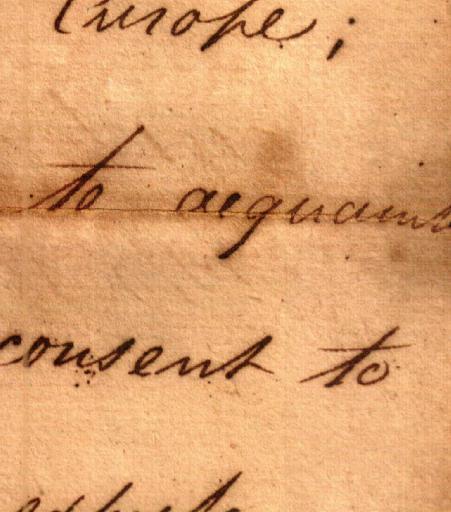 Europe;
to acquaint
consent to